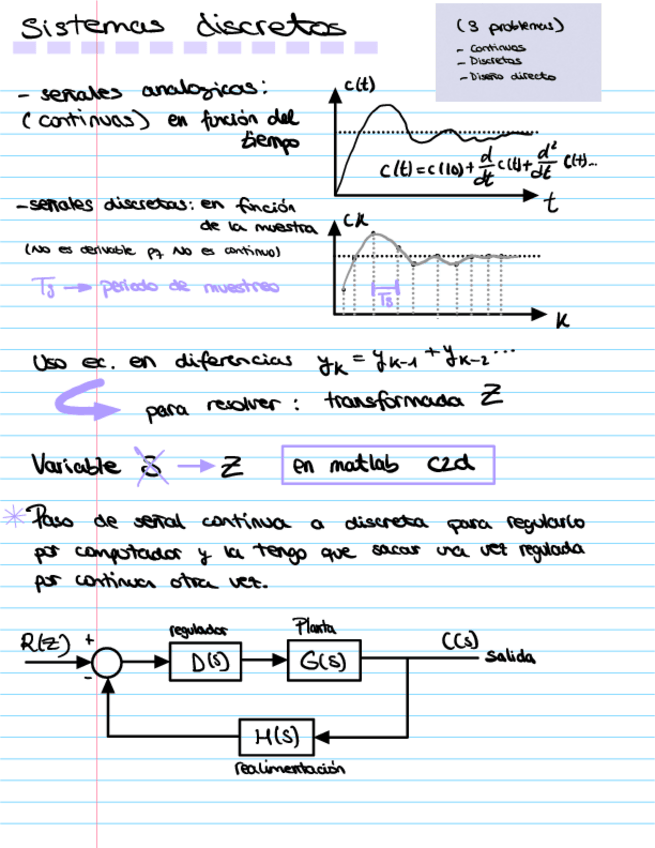 Sistemas discretos
(3 problemas)
- Continuos
- Discretos
- Diseño directo
- señales analogicas:
(continuas) en función del
tiempo
c(t)
c(t) = c(10) + d/dt c(t) + d²/dt c(t)...
t
- señales discretas: en función
de la muestra
(No es derivable pq no es continuo)
Ts → periodo de muestreo
CK
Ts
K
Uso ec. en diferencias yK = yK-1 + yK-2 ...
para resolver: transformada Z
Variable S → Z
en matlab c2d
* Paso de señal continua a discreta para regularlo
por computador y la tengo que sacar una vez regulada
por continua otra vez.
R(Z)
+
-
regulador
D(s)
Planta
G(s)
C(s)
salida
H(s)
realimentación